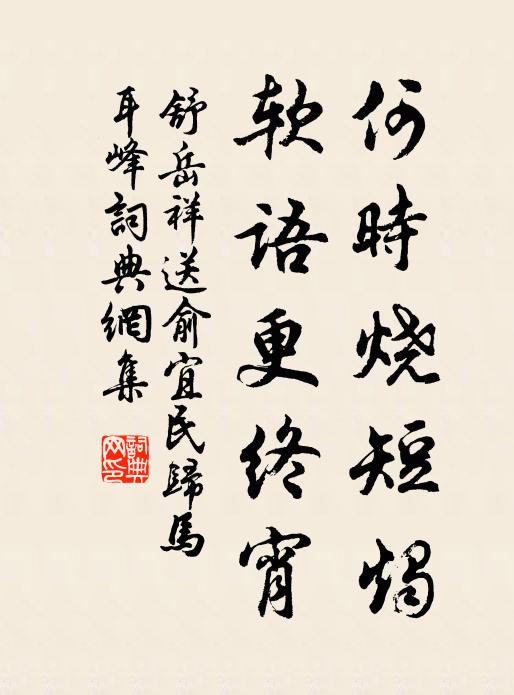 何時烧短燭
软語更终宵
舒岳祥送俞宜民歸馬
耳峰詞典網集
詞典网印